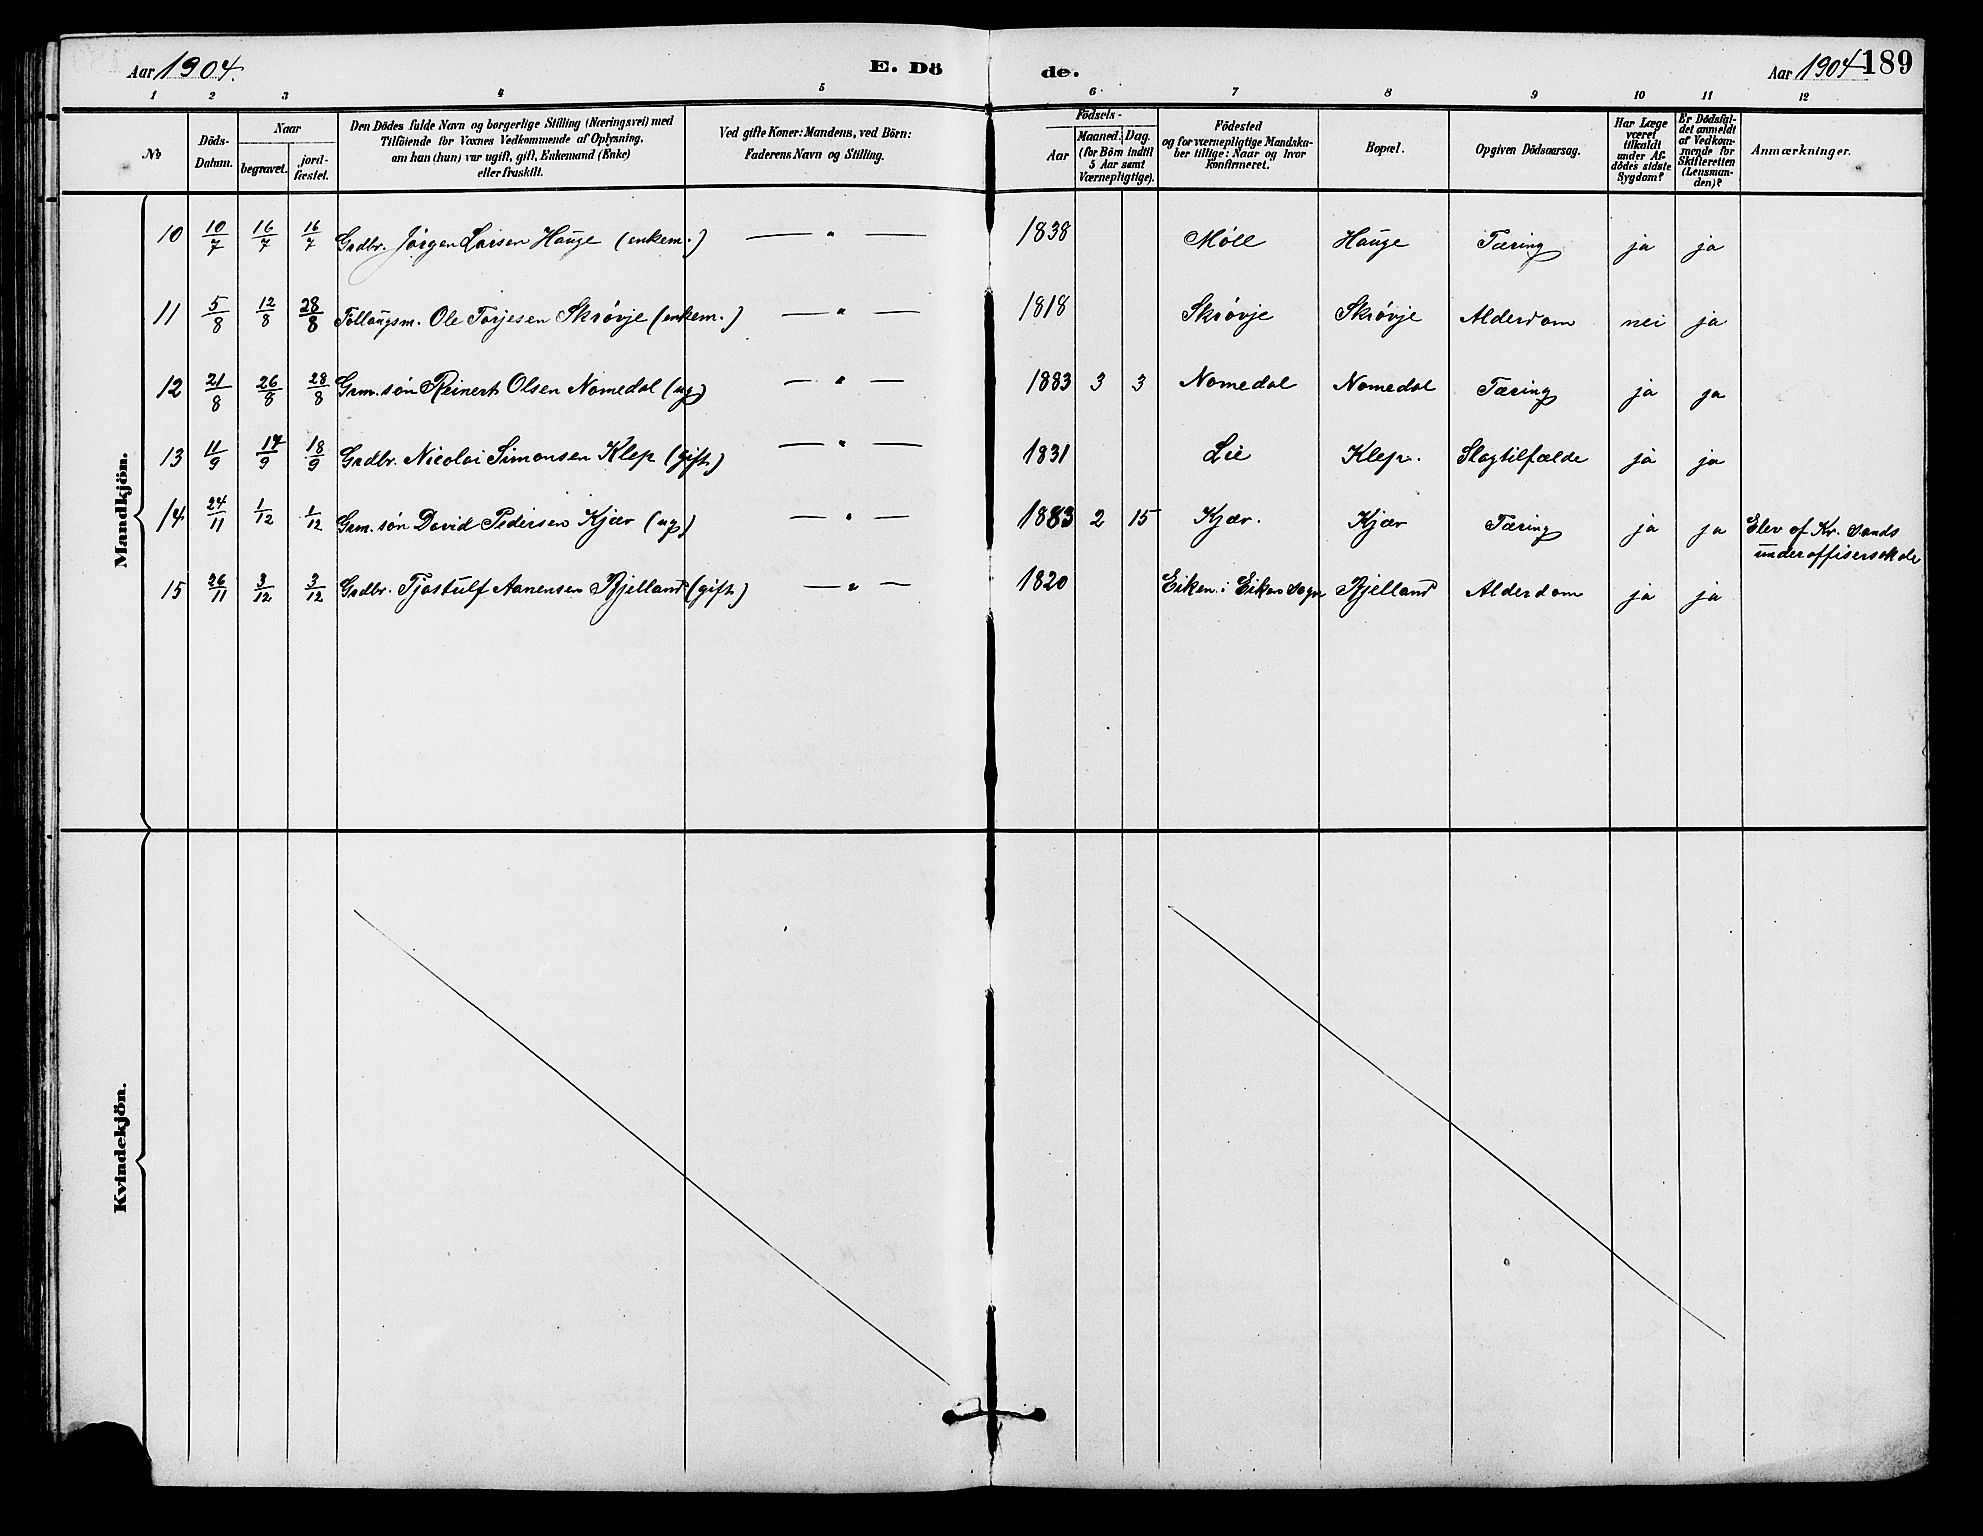 Aar 1904. E. Dö de. Aar 1904 189
1 2 3 4 5 6 7 8 9 10 11 12
No
Döds-Datum.
Naar
begravet.
jord-fæstet.
Den Dödes fulde Navn og borgerlige Stilling (Næringsvei) med
Tilföiende for Voxnes Vedkommende af Oplysning,
om han (hun) var ugift, gift, Enkemand (Enke)
eller fraskilt.
Ved gifte Koner: Mandens, ved Börn:
Faderens Navn og Stilling.
Födsels-
Aar
Maaned. Dag.
(for Börn indtil
5 Aar samt
Værnepligtige).
Födested
og for værnepligtige Mandska-
ber tillige: Naar og hvor
konfirmeret.
Bopæl.
Opgiven Dödsaarsag.
Har Læge
været
tilkaldt
under Af-
dödes sidste
Sygdom?
Er Dödsfal-
det anmeldt
af Vedkom-
mende for
Skifteretten
(Lensman-
den)?
Anmærkninger.
Mandkjön.
10 10/7 16/7 16/7 Grdbr. Jørgen Larsen Hauge (enkem.) — " — 1838 Møll Hauge Tæring ja ja
11 5/8 12/8 28/8 Føllaugsm. Ole Torjesen Skrøvje (enkem.) — " — 1818 Skrøvje Skrøvje Alderdom nei ja
12 21/8 26/8 28/8 Grm. søn Reinert Olsen Nomedal (ug) — " — 1883 3 3 Nomedal Nomedal Tæring ja ja
13 11/9 17/9 18/9 Grdbr. Nicolai Simonsen Klep (gift) — " — 1831 Lie Klep. Slagtilfælde ja ja
14 24/11 1/12 1/12 Grm. søn David Pedersen Kjær (ug) — " — 1883 2 15 Kjær. Kjær Tæring ja ja Elev af Kr. sands
underoffiserskole
15 26/11 3/12 3/12 Grdbr. Tjostulf Aanensen Bjelland (gift) — " — 1820 Eiken i Eiken sogn Bjelland Alderdom ja ja
Kvindekjön.